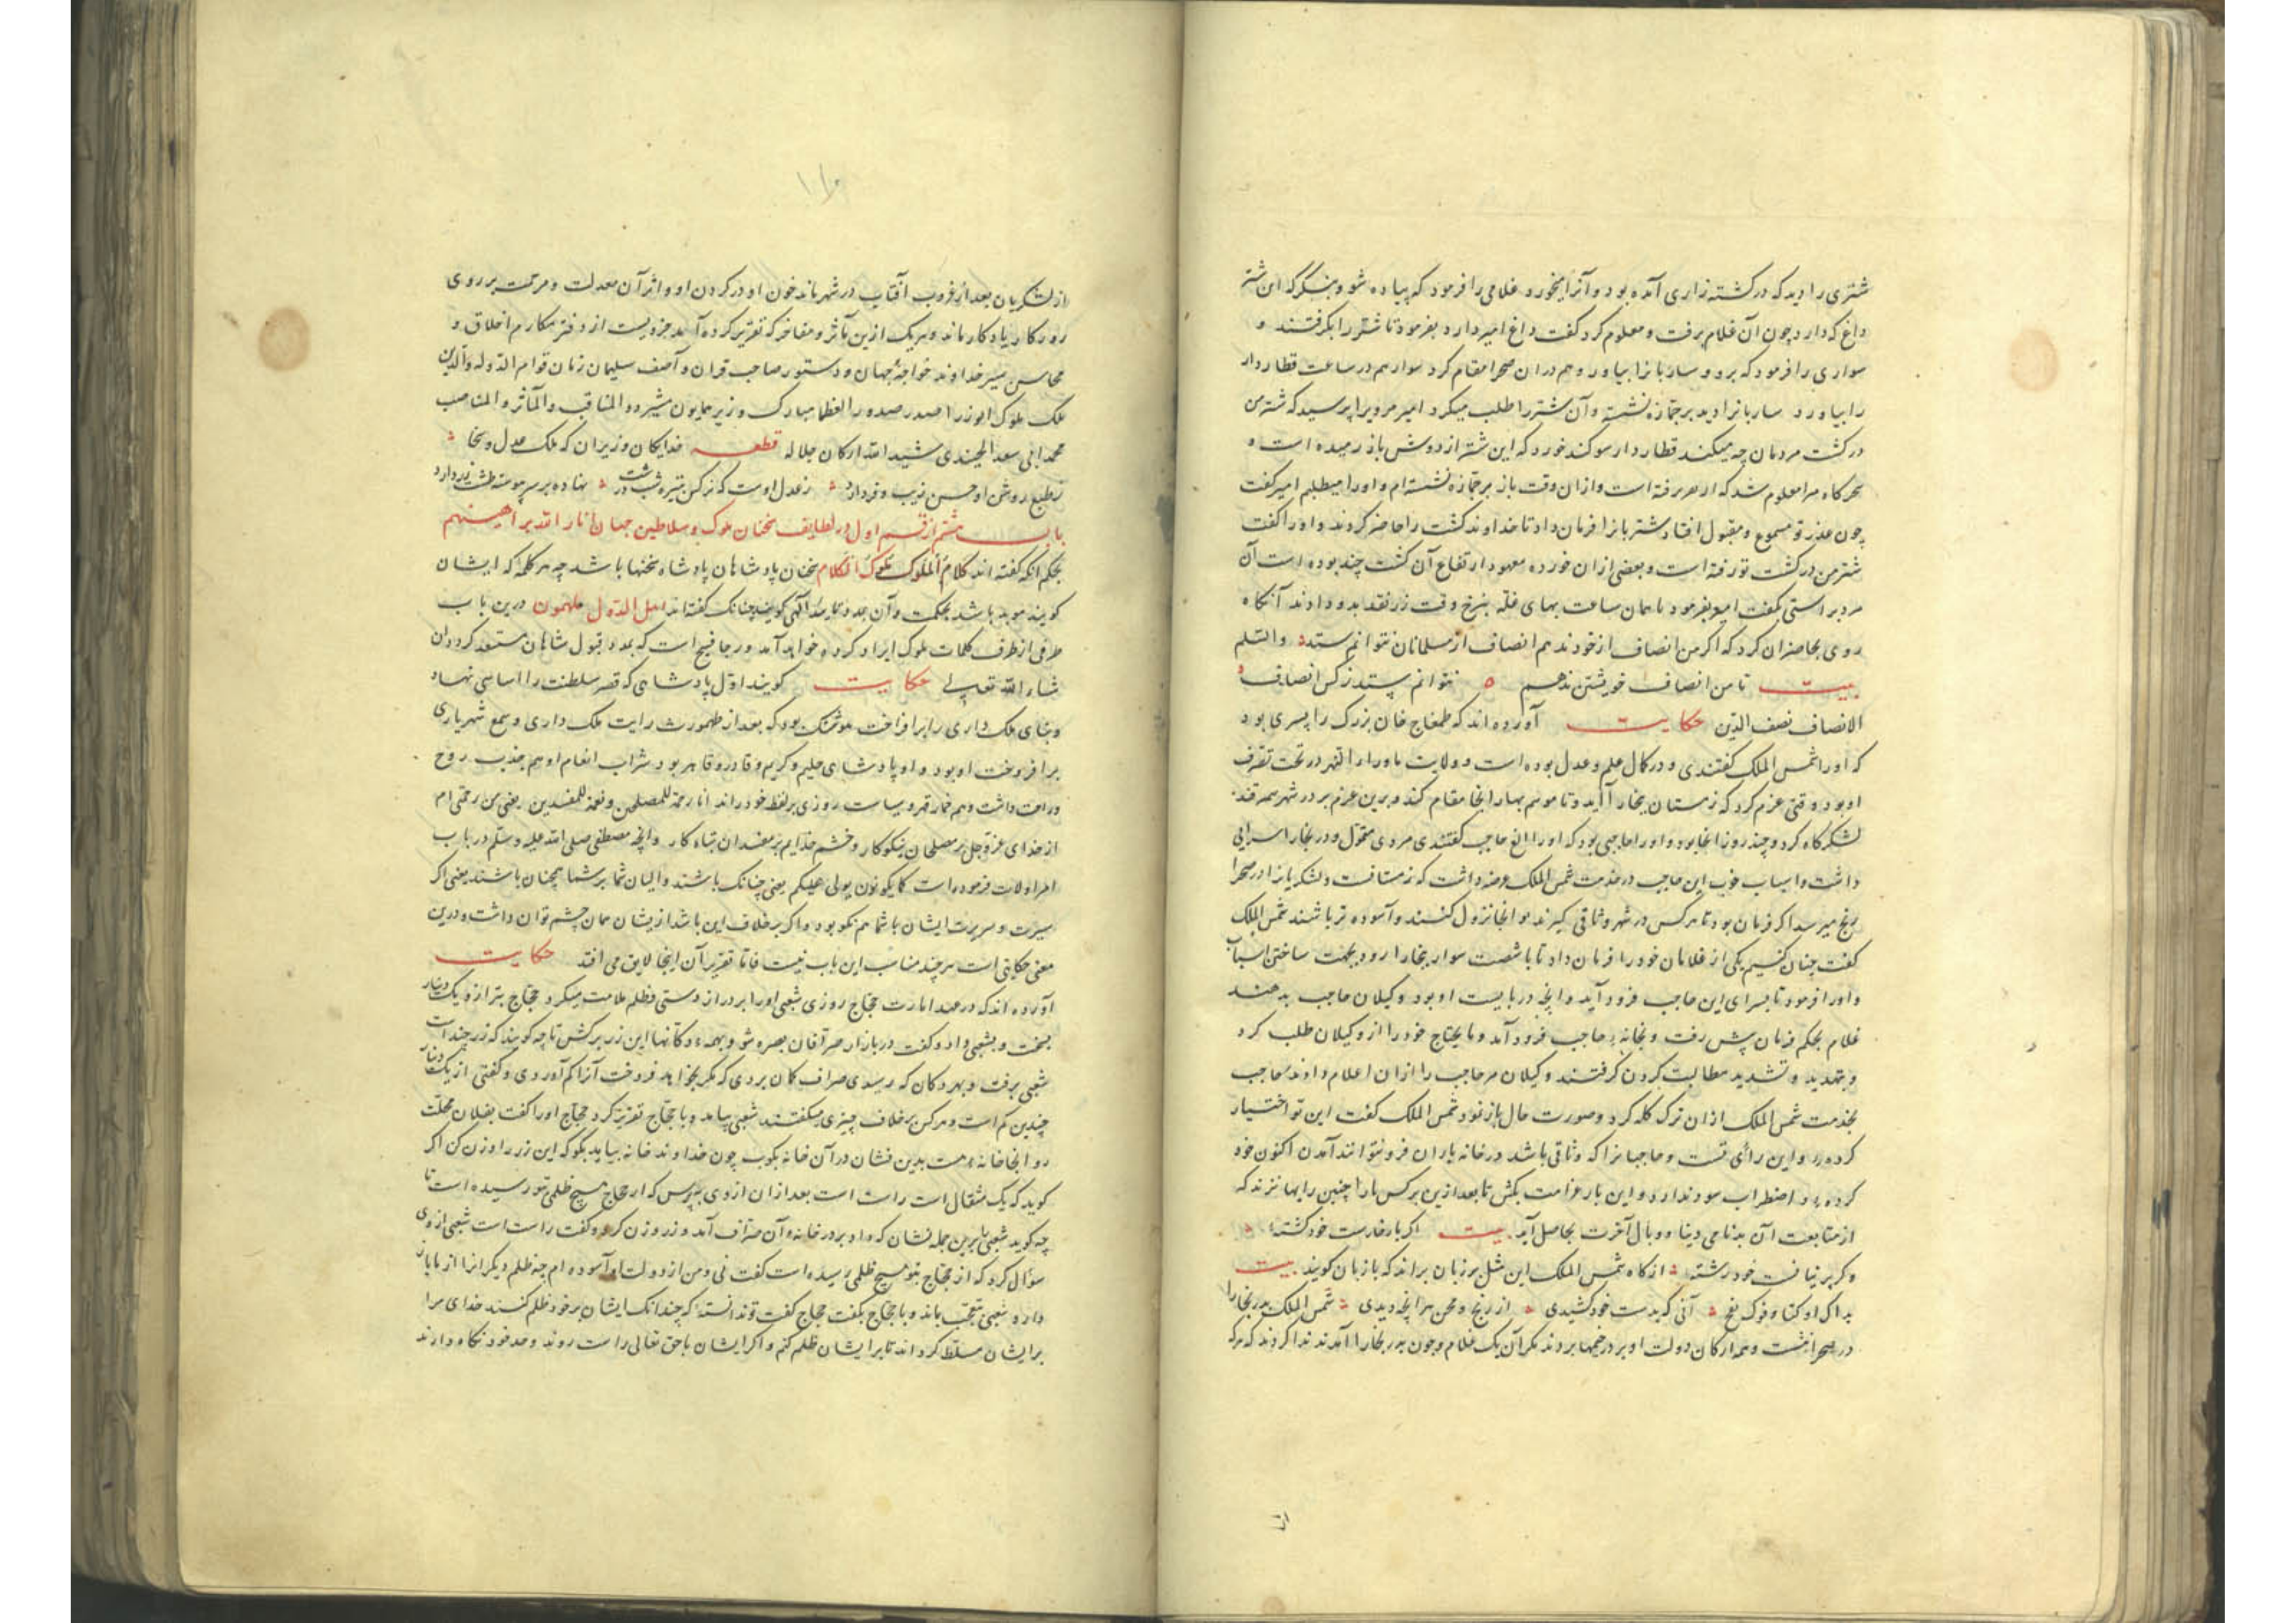 شتری را دید که در کشته زاری آمده بود و آنرا میخورد غلامی را فرمود که پیاده شو و بنگر که این شتر
داغ که دارد چون آن غلام برفت و معلوم کرد گفت داغ امیر دارد بفرمود تا شتر را بگرفتند و
سواری را فرمود که برو و ساربانرا بیاور و هم دران صحرا مقام کرد سوار هم در ساعت قطاردار
را بیاورد ساربانرا دید بر جمازه نشسته و آن شتر را طلب میکرد امیر مرویرا پرسید که شتر من
در کشت مردمان چه میکند قطاردار سوکند خورد که این شتر از دوش باز رمیده است و
سحرکاه مرا معلوم شد که او هر برفته است و ازان وقت باز بر جمازه نشسته ام و او را میطلبم امیر کفت
چون عذر تو مسموع و مقبول افتاد شتربانرا فرمان داد تا خداوند کشت را حاضر کردند و او را کفت
شتر من در کشت تو رفته است و بعضی ازان خورده معهود ارتفاع آن کشت چند بوده است آن
مرد براستی بگفت امیر بفرمود تا همان ساعت بهای غله بنرخ وقت زر نقد بدو دادند آنگاه
روی بحاضران کرد که اکر من انصاف از خود ندهم انصاف از مسلمانان نتوانم ستد والسلم
بیت تا من انصاف خویشتن ندهم نتوانم ستد ز کس انصاف
الانصاف نصف الدین حکایت آورده اند که طمغاج خان بزرک را پسری بود
که او را شمس الملک کفتندی و در کمال علم و عدل بوده است و ولایت ماوراء النهر در تحت تصرف
او بود وقتی عزم کرد که زمستان ببخارا آید و تا موسم بهار آنجا مقام کند و برین عزم بر در شهر سمرقند
لشکرگاه کرد و چند روز آنجا بود و او را حاجبی بود که او را الغ حاجب کفتندی مردی متمول و در بخارا سرایی
داشت و اسباب خوب این حاجب در خدمت شمس الملک عرضه داشت که زمستانست و لشکریانرا در صحرا
رنج میرسد اکر فرمان بود تا هر کس در شهر وثاقی کیرند و آنجا نزول کنند و آسوده تر باشند شمس الملک
کفت چنان کنیم یکی از غلامان خود را فرمان داد تا با شصت سوار ببخارا رود بجهت ساختن اسباب
و او را فرمود تا بسرای این حاجب فرود آید و آنچه دربایست او بود وکیلان حاجب بدهند
غلام بحکم فرمان پیش رفت و بخانه حاجب فرود آمد و مایحتاج خود را از وکیلان طلب کرد
و بتهدید و تشدید مطالبت کردن کرفتند وکیلان مر حاجب را ازان اعلام دادند حاجب
بخدمت شمس الملک ازان ترک کله کرد و صورت حال باز نمود شمس الملک کفت این تو اختیار
کرده و این رای تست و حاجبانرا که وثاقی باشد در خانه یاران فرو نتوانند آمدن اکنون خود
کرده و اضطراب سود ندارد و این بار غرامت بکش تا بعد ازین بر کس ما را چنین رایها نزند که
از متابعت آن بدنامی دنیا و وبال آخرت بحاصل آید بیت اکر بار خارست خود کشته
وکر پرنیانست خود رشته انگاه شمس الملک این مثل بر زبان براند که بتازیان کویند بیت
یداک اوکتا و فوک نفخ آنی که بدست خود کشیدی از رنج و محن هر آنچه دیدی شمس الملک بدر بخارا
در صحرا نشست و همه ارکان دولت او بر در خیمها بروند مکر آن یک غلام و چون بدر بخارا آمدند ندا کردند که هرکه
از لشکریان بعد از غروب آفتاب در شهر ماند خون او در کردن او و اثر آن معدلت و مرحمت بر روی
روزکار یادکار ماند و هر یک ازین مآثر و مفاخر که تقریر کرده آمد جزویست از دفتر مکارم اخلاق و
محاسن سیر خداوند خواجه جهان و دستور صاحب قران و آصف سلیمان زمان قوام الدوله والدین
ملک ملوک الوزرا صدر صدور العظما مبارک وزیر همایون مشیر ذو المناقب والمآثر والمناصب
محمد ابی سعد الجنیدی شید الله ارکان جلاله قطعه خدایکان وزیران که ملک عدل و سخا
ز طبع روشن او حسن زیب و فر دارد ز عدل اوست که نرکس بتیره شب در دشت نهاده بر سر پیوسته طشت زر دارد
باب هشتم از قسم اول در لطایف سخنان ملوک و سلاطین جهان انار الله براهینهم
بحکم آنکه کفته اند کلام الملوک ملوک الکلام سخنان پادشاهان پادشاه سخنها باشد چه هر کلمه که ایشان
کویند موید باشد بحکمت و آن مدد بتایید الهی کویند چنانک کفته اند اهل الدول ملهمون درین باب
طرفی از طرف کلمات ملوک ایراد کرده خواهد آمد و رجا فسیح است که بمدد قبول شاهان مستسعد کردد ان
شاء الله تعالی حکایت کویند اول پادشاهی که قصر سلطنت را اساسی نهاد
و بنای ملک داری را برافراخت هوشنگ بود که بعد از طهمورث رایت ملک داری و شمع شهریاری
برافروخت او بود و او پادشاهی حلیم و کریم و قادر و قاهر بود شراب انعام او هم جذب روح
و راحت داشت و هم خمار قهر و سیاست روزی بر لفظ خود راند انا رحمة للمصلحین و نقمة للمفسدین یعنی من رحمتی ام
از خدای عز و جل بر مصلحان نیکوکار و خشم خدایم بر مفسدان تباه کار و آنچه مصطفی صلی الله علیه و سلم در باب
امرا ولات فرموده است کما یکونون یولی علیکم یعنی چنانک باشند والیان شما بر شما همچنان باشند یعنی اکر
سیرت و سریرت ایشان با شما هم نکو بود و اکر برخلاف این باشد از یشان همان چشم توان داشت و درین
معنی حکایتی است هر چند مناسب این باب نیست فاما تقریر آن اینجا لایق می افتد حکایت
آورده اند که در عهد امارت حجاج روزی شعبی او را بر درازدستی و ظلم ملامت میکرد حجاج بترازو یک دینار
بسخت و بشعبی داد و کفت در بازار صرافان بصره شو و بهمه دکانها این زر برکش تا چه کویند که زر چند است
شعبی برفت و بهر دکان که رسیدی صراف کمان بردی که مکر بخواهد فروخت آنرا کم آوردی و کفتی از یک دینار
چندین کم است و هر کس برخلاف چیزی میکفتند شعبی بیامد و با حجاج تقریر کرد حجاج او را کفت بفلان محلت
رو آنجا خانه هست بدین نشان در آن خانه بکوب چون خداوند خانه بیاید بکو که این زر را وزن کن اکر
کوید که یک مثقال است راست است بعد ازان از وی بپرس که از حجاج هیچ ظلمی بتو رسیده است تا
چه کوید شعبی برین جمله نشان که داد بر در خانه و آن صراف آمد و زر وزن کرد و کفت راست است شعبی از وی
سؤال کرد که از حجاج بتو هیچ ظلمی رسیده است کفت نی و من از دولت او آسوده ام چه ظلم دیکرانرا از ما باز
دارد شعبی متعجب بماند و با حجاج بکفت حجاج کفت تو ندانسته که چندانک ایشان بر خود ظلم کنند خدای مرا
بر ایشان مسلط کرداند تا بر ایشان ظلم کنم و اکر ایشان با حق تعالی راست روند و حد خود نکاه دارند